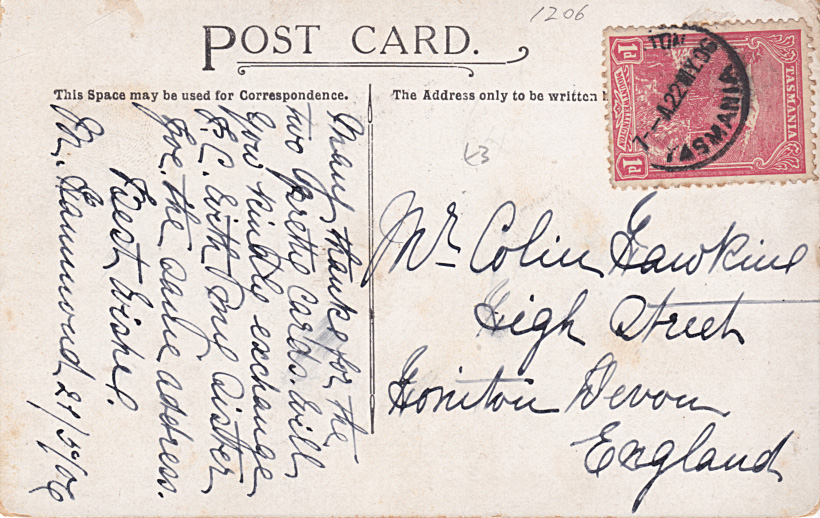 1206
POST CARD.
This Space may be used for Correspondence.
The Address only to be written
TASMANIA
1d
1d
TASMANIA
22 MY 06
£3
Many thanks for the
two pretty Cards. Will
you kindly exchange
P.C. with my sister
for the same address.
Best wishes.
M. Hammond 21/5/06
Mr Colin Hawkins
High Street
Honiton Devon
England